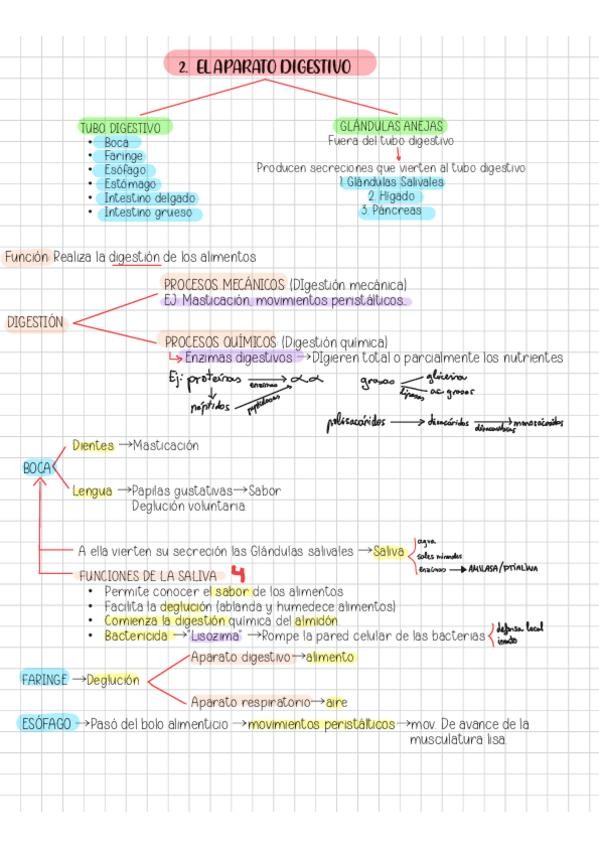 2. EL APARATO DIGESTIVO
TUBO DIGESTIVO
• Boca
• Faringe
• Esófago
• Estómago
• Intestino delgado
• Intestino grueso
GLÁNDULAS ANEJAS
Fuera del tubo digestivo
Producen secreciones que vierten al tubo digestivo
1. Glándulas Salivales
2. Hígado
3. Páncreas
Función: Realiza la digestión de los alimentos
DIGESTIÓN
PROCESOS MECÁNICOS (DIgestión mecánica)
EJ: Masticación, movimientos peristálticos.
PROCESOS QUÍMICOS (Digestión química)
Enzimas digestivos → DIgieren total o parcialmente los nutrientes
Ej: proteínas → enzimas → αα
péptidos → peptidasas
grasas → glicerina
lipasas → ac. grasos
polisacáridos → disacáridos → disacaridasas → monosacáridos
BOCA
Dientes → Masticación
Lengua → Papilas gustativas → Sabor
Deglución voluntaria
A ella vierten su secreción las Glándulas salivales → Saliva
agua
sales minerales
enzimas → AMILASA/PTIALINA
FUNCIONES DE LA SALIVA 4
• Permite conocer el sabor de los alimentos
• Facilita la deglución (ablanda y humedece alimentos)
• Comienza la digestión química del almidón.
• Bactericida → "Lisozima" → Rompe la pared celular de las bacterias
defensa local
innata
FARINGE → Deglución
Aparato digestivo → alimento
Aparato respiratorio → aire
ESÓFAGO → Pasó del bolo alimenticio → movimientos peristálticos → mov. De avance de la
musculatura lisa.